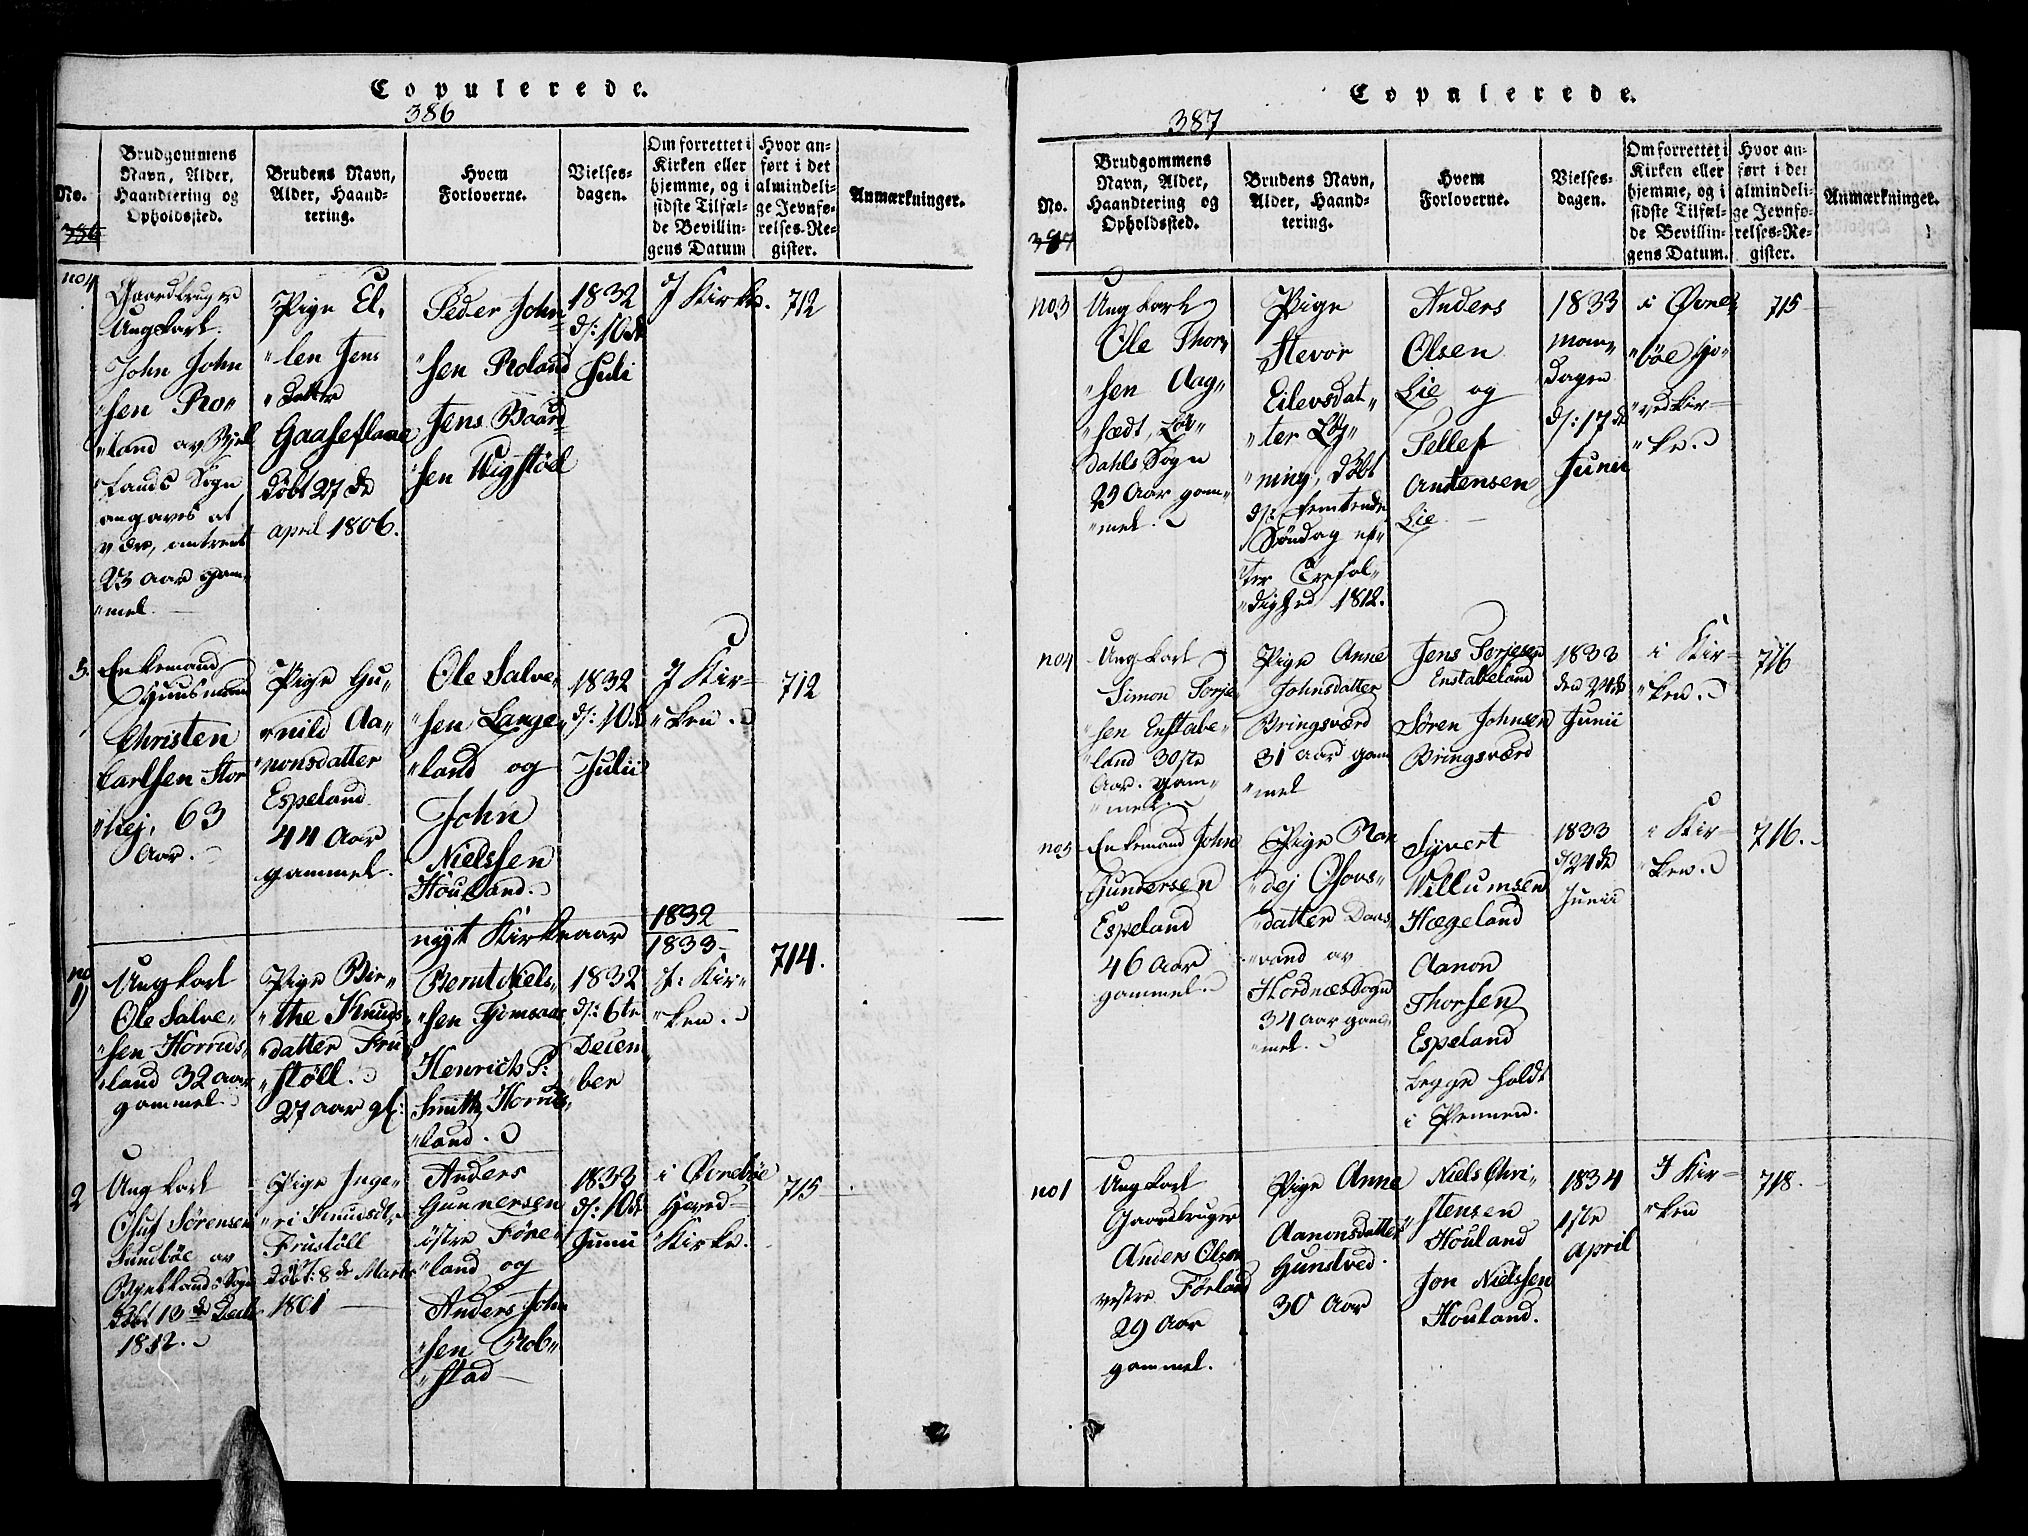 Copulerede.
386
No.
386
Brudgommens
Navn, Alder,
Haandtering og
Opholdssted.
Brudens Navn,
Alder, Haand-
tering.
Hvem
Forloverne.
Vielses-
dagen.
Om forrettet i
Kirken eller
hjemme, og i
sidste Tilfæl-
de Bevillin-
gens Datum
Hvor an-
ført i det
almindeli-
ge Jevnfø-
relses-Re-
gister.
Anmærkninger.
no 4
Gaardbruger
Ungkarl
John John
"sen Ro-
"land av Bjel
"lands Sogn
angaves at
være, omtrent
23 Aar gam-
"mel.
Pige El-
"len Jens
"datter
Gaaseflaae
døbt 27 de
april 1806.
Peder John-
"sen Roland
Jens Baard
"sen Uigstøel
1832
d/: 10de
Juli
J Kirke.
712
5.
Enkemand
Huusmand
Christen
Carlsen Stor
"hej, 63
Aar.
Pige Gu-
"nild Aa-
"nonsdatter
Espeland
44 Aar
gammel.
Ole Salve-
"sen Lange-
"land og
John
Nielssen
Houland.
1832
d/: 10de
Julii
J Kir-
"ken.
712
nyt Kirkeaar
1832
1833
no
1)
Ungkarl
Ole Salve-
"sen Horrus-
"land 32 Aar
gammel.
Pige Bir-
"the Knuds-
"datter Fru-
"støll.
27 aar gl:
Bernt Niels-
"sen Fjemsaae
Henrich P:
Smith, Horrus-
"land.
1832
d/: 6te
Decem-
"ber
J: Kir-
"ken.
714.
2
Ungkarl
Oluf Sörensen
Sundbøe av
Bjellands Sogn
døbt 13de Decb
1812.
Pige Inge-
"ri Knudsdtr
Frustöll
døbt: 8de Marts
1801
Anders
Gunnersen
östre Före-
"land og
Anders John
"sen Rob-
"stad
1833
d/: 10de
Junii
i Øvrebøe
Hoved-
"Kirke.
715
Copulerede.
387
No.
387
Brudgommens
Navn, Alder,
Haandtering og
Opholdssted.
Brudens Navn,
Alder, Haand-
tering.
Hvem
Forloverne.
Vielses-
dagen.
Om forrettet i
Kirken eller
hjemme, og i
sidste Tilfæl-
de Bevillin-
gens Datum.
Hvor an-
ført i det
almindeli-
ge Jevnfø-
relses-Re-
gister.
Anmærkninger.
no 3
Ungkarl
Ole Thor-
"sen Aag-
"sædt, Löv-
dahls Sogn
29 Aar gam-
"mel.
Pige
Stevor
Eilevsdat-
"ter Løg-
"ning, døbt
d/: femtende
Söndag ef-
"ter Trefol-
"dighed 1812.
Anders
Olsen
Lie og
Tellef
Andensen
Lie
1833
Man-
dagen
d/: 17de
Junii
i Øvre-
"bøe Ho-
"vedkir-
"ke.
715
no 4
Ungkarl
Simon Torje
"sen Enstabe-
"land 30ste
Aar. gam-
"mel.
Pige Anne
Johnsdatter
Bringsværd
31 aar gam
"mel
Jens Torjesen
Enstabeland
Søren Johnsen
Bringsværd
1833
den 24de
Junii
i Kir-
"ken.
716
no 5
Enkemand John
Gundersen
Espeland
46 Aar
gammel.
Pige Ran
"dej Osovs-
"datter Daas-
"vand av
Hordnæs Sogn
34 aar gam-
"mel.
Syvert
Willumsen
Hægeland
Aanon
Thorsen
Espeland
begge holdt
i Pennen.
1833
d/24de
Junii
i Kir-
"ken.
716.
no 1
Ungkarl
Gaardbruger
Anders Olsen
vestre Förland
29 Aar
gammel.
Pige Anne
Aanonsdatter
Gunstved.
30 Aar
Niels Chri-
"stensen
Houland
Jon Nielssen
Houland.
1834
1ste
April
J Kir-
"ken
718.